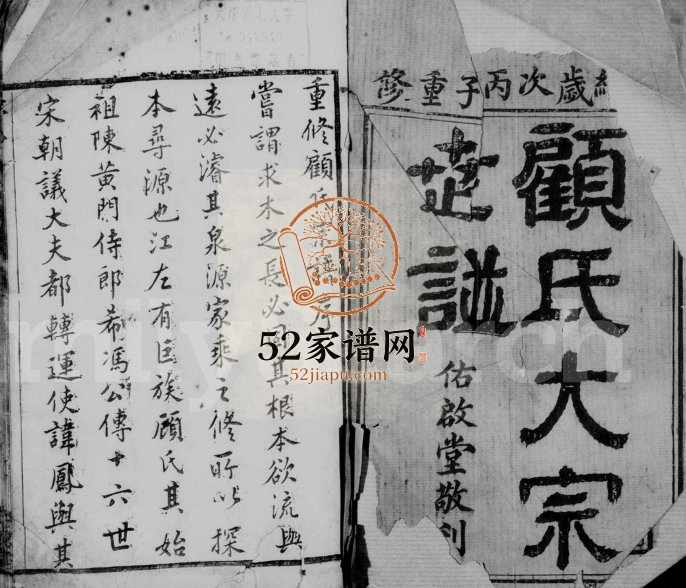 歲次丙子重修
顧氏大宗
世譜
佑啟堂敬刊
重修顧氏
嘗謂求木之長必固其根本欲流與
遠必濬其泉源家乘之修所以探
本尋源也江左有巨族顧氏其始
祖陳黃門侍郎希馮公傳十六世
宋朝議大夫都轉運使諱鳳與其
52家谱网
52jiapu.com